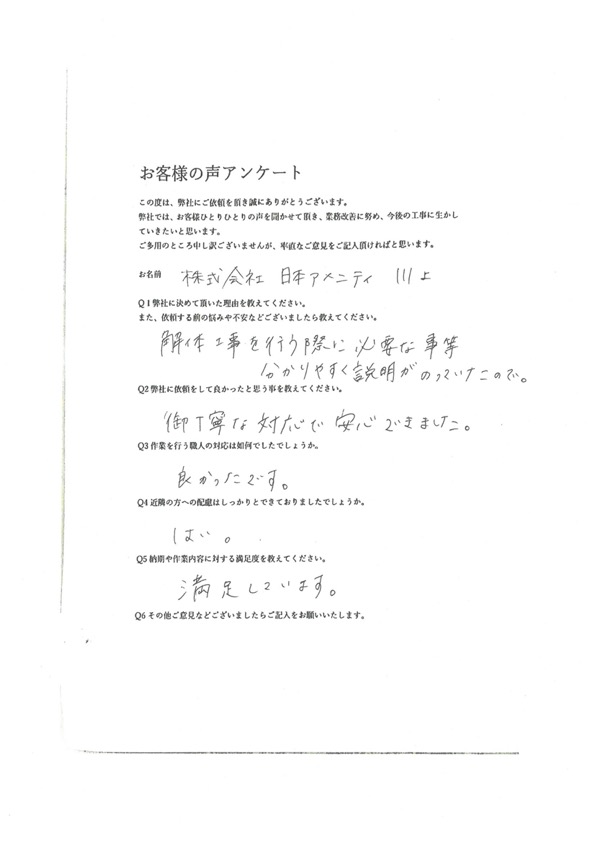 お客様の声アンケート
この度は、弊社にご依頼を頂き誠にありがとうございます。
弊社では、お客様ひとりひとりの声を聞かせて頂き、業務改善に努め、今後の工事に生かし
ていきたいと思います。
ご多用のところ申し訳ございませんが、率直なご意見をご記入頂ければと思います。
お名前 株式会社 日本アメニティ 川上
Q1弊社に決めて頂いた理由を教えてください。
また、依頼する前の悩みや不安などございましたら教えてください。
解体工事を行う際に必要な事等
分かりやすく説明がのっていたので。
Q2弊社に依頼をして良かったと思う事を教えてください。
御丁寧な対応で安心できました。
Q3作業を行う職人の対応は如何でしたでしょうか。
良かったです。
Q4近隣の方への配慮はしっかりとできておりましたでしょうか。
はい。
Q5納期や作業内容に対する満足度を教えてください。
満足しています。
Q6その他ご意見などございましたらご記入をお願いいたします。